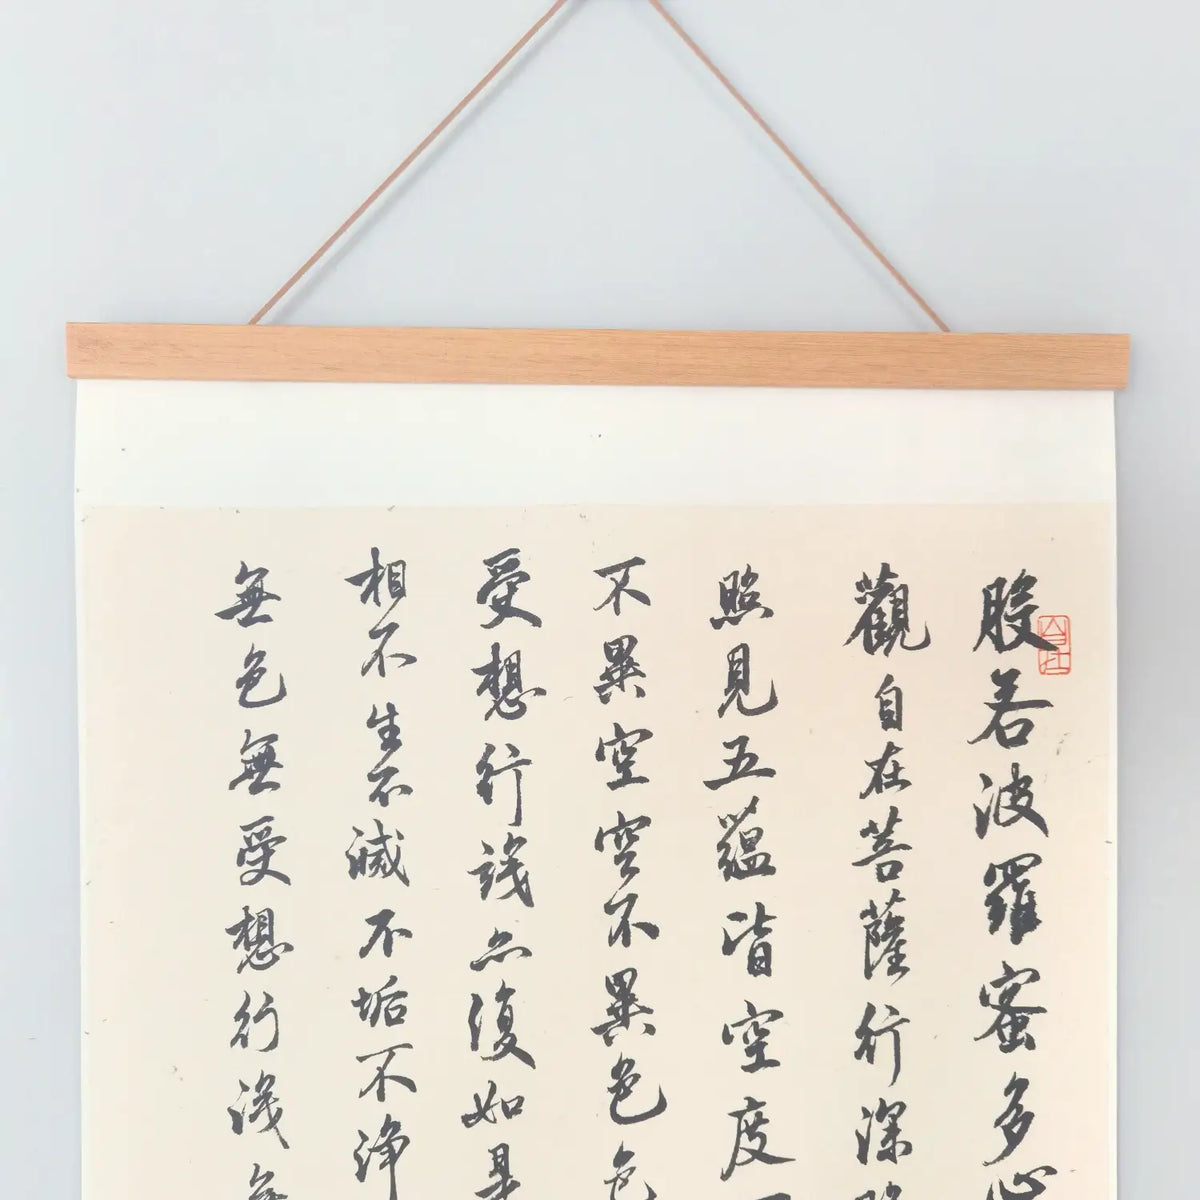 般若波羅蜜多心
觀自在菩薩行深
照見五蘊皆空度
不異空空不異色色
受想行識亦復如是
相不生不滅不垢不淨
無色無受想行識無